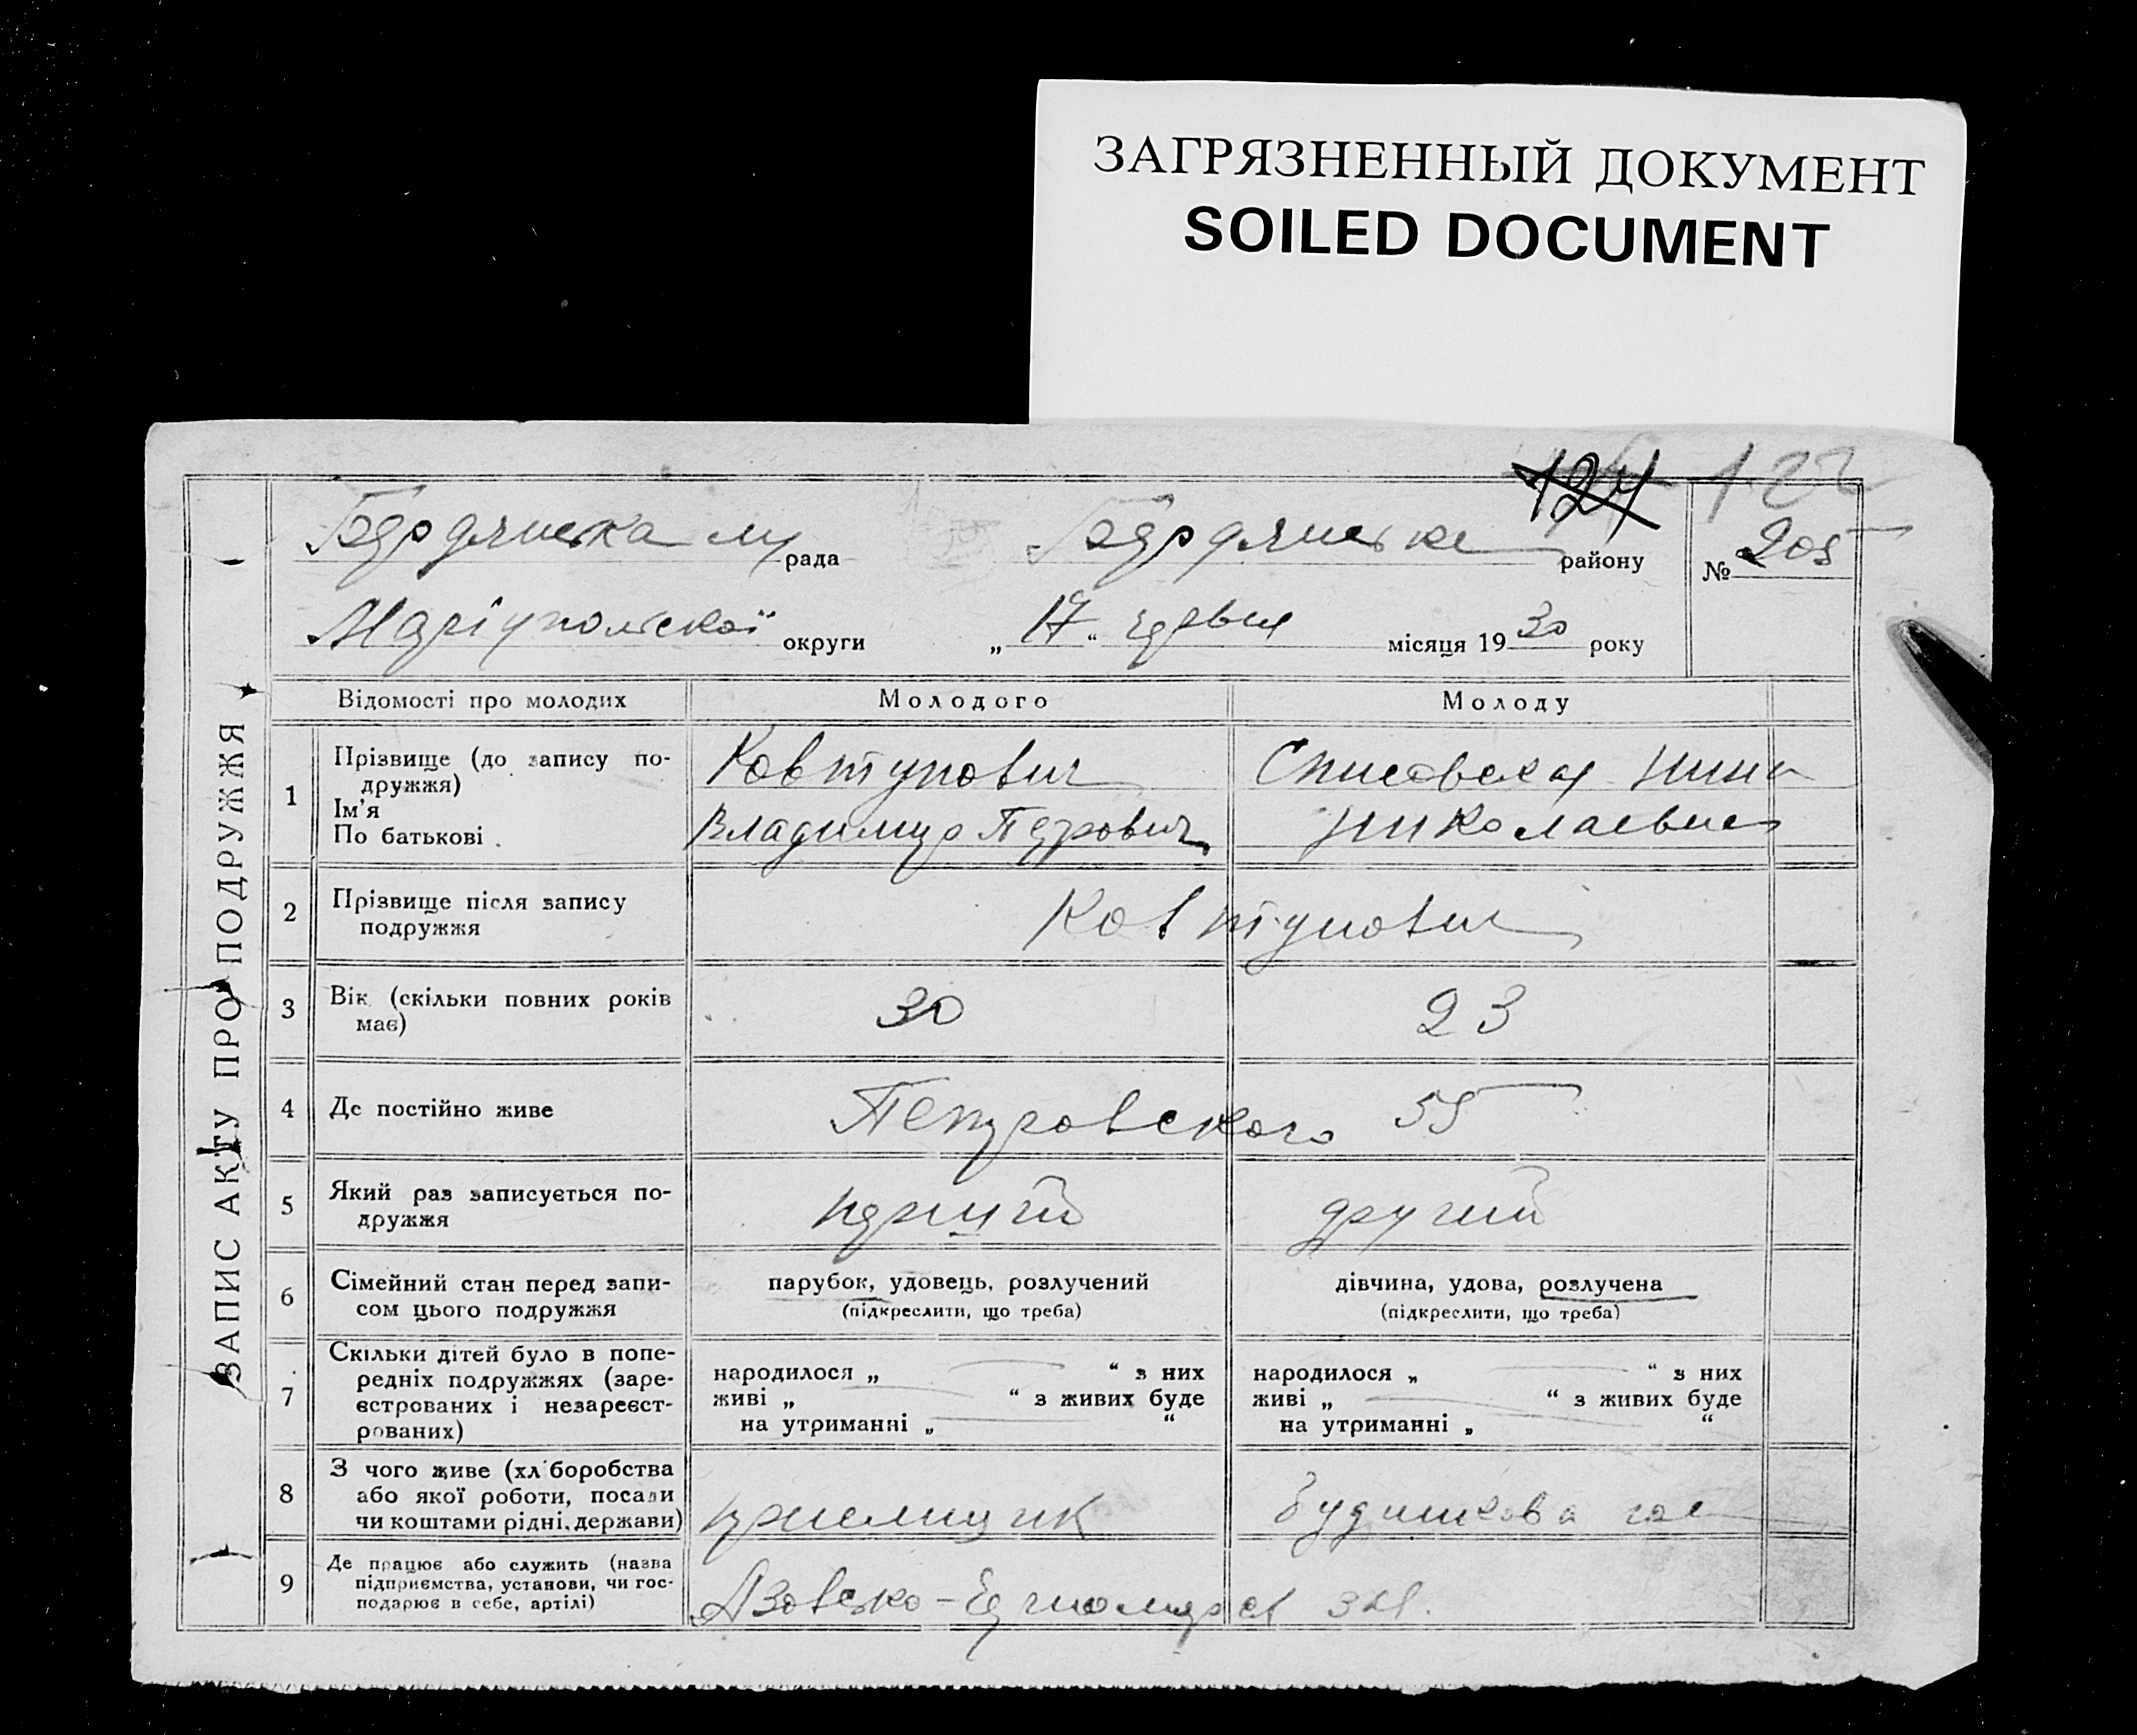 ЗАГРЯЗНЕННЫЙ ДОКУМЕНТ
SOILED DOCUMENT
124 122
Бердянська м рада Бердянське району № 205
Маріупольскої округи „17“ червня місяця 1930 року
ЗАПИС АКТУ ПРО ПОДРУЖЖЯ
Відомості про молодих Молодого Молоду
1 Прізвище (до запису по-
дружжя)
Ім'я
По батькові
Ковтунович
Владимир Петрович
Нина
Николаевна
2 Прізвище після запису
подружжя
Ковтунович
3 Вік (скільки повних років
має)
30 23
4 Де постійно живе Петровского 55
5 Який раз записується по-
дружжя
перший другий
6 Сімейний стан перед запи-
сом цього подружжя
парубок, удовець, розлучений
(підкреслити, що треба)
дівчина, удова, розлучена
(підкреслити, що треба)
7 Скільки дітей було в попе-
редніх подружжях (заре-
єстрованих і незареєст-
рованих)
народилося „ “ з них
живі „ “ з живих буде
на утриманні „ “
народилося „ “ з них
живі „ “ з живих буде
на утриманні „ “
8 З чого живе (хліборобства
або якої роботи, посади
чи коштами рідні, держави)
приемщик
9 Де працює або служить (назва
підприємства, установи, чи гос-
подарює в себе, артілі)
Азовсько-Чорноморск